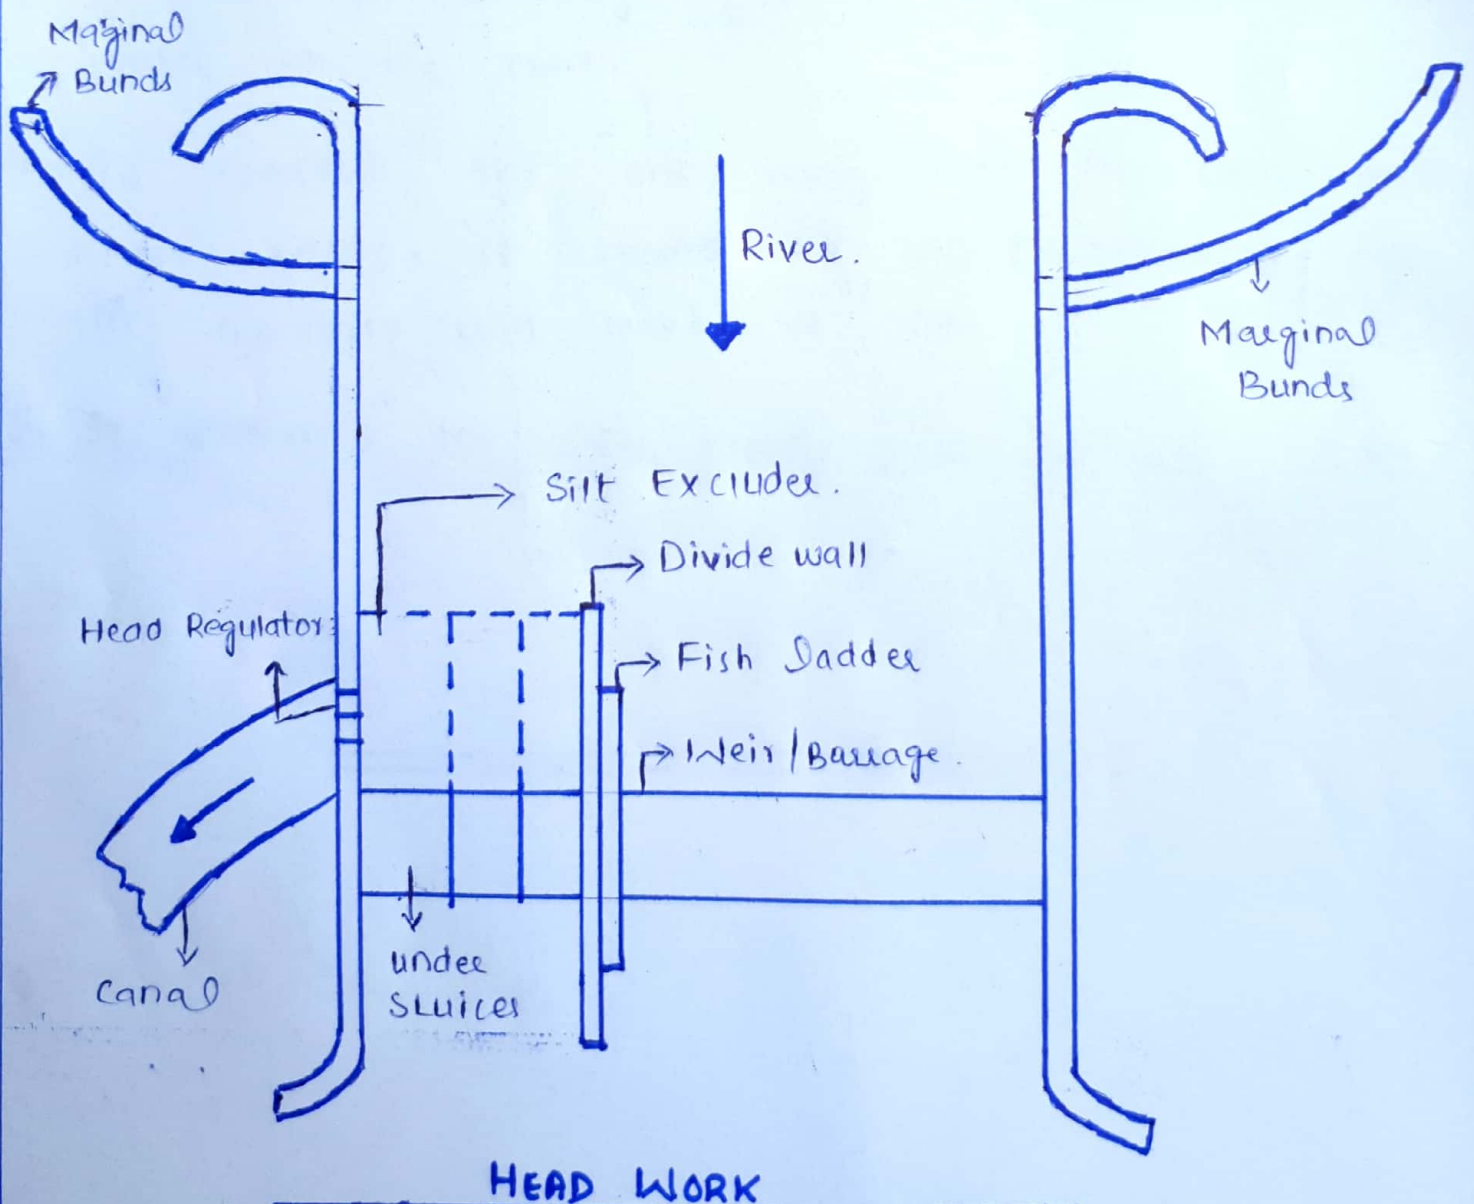 Maginal
Bunds
River.
Marginal
Bunds
Silt Excluder.
Divide wall
Head Regulator
Fish Ladder
Weir/Barrage.
under
Sluices
Canal
HEAD WORK